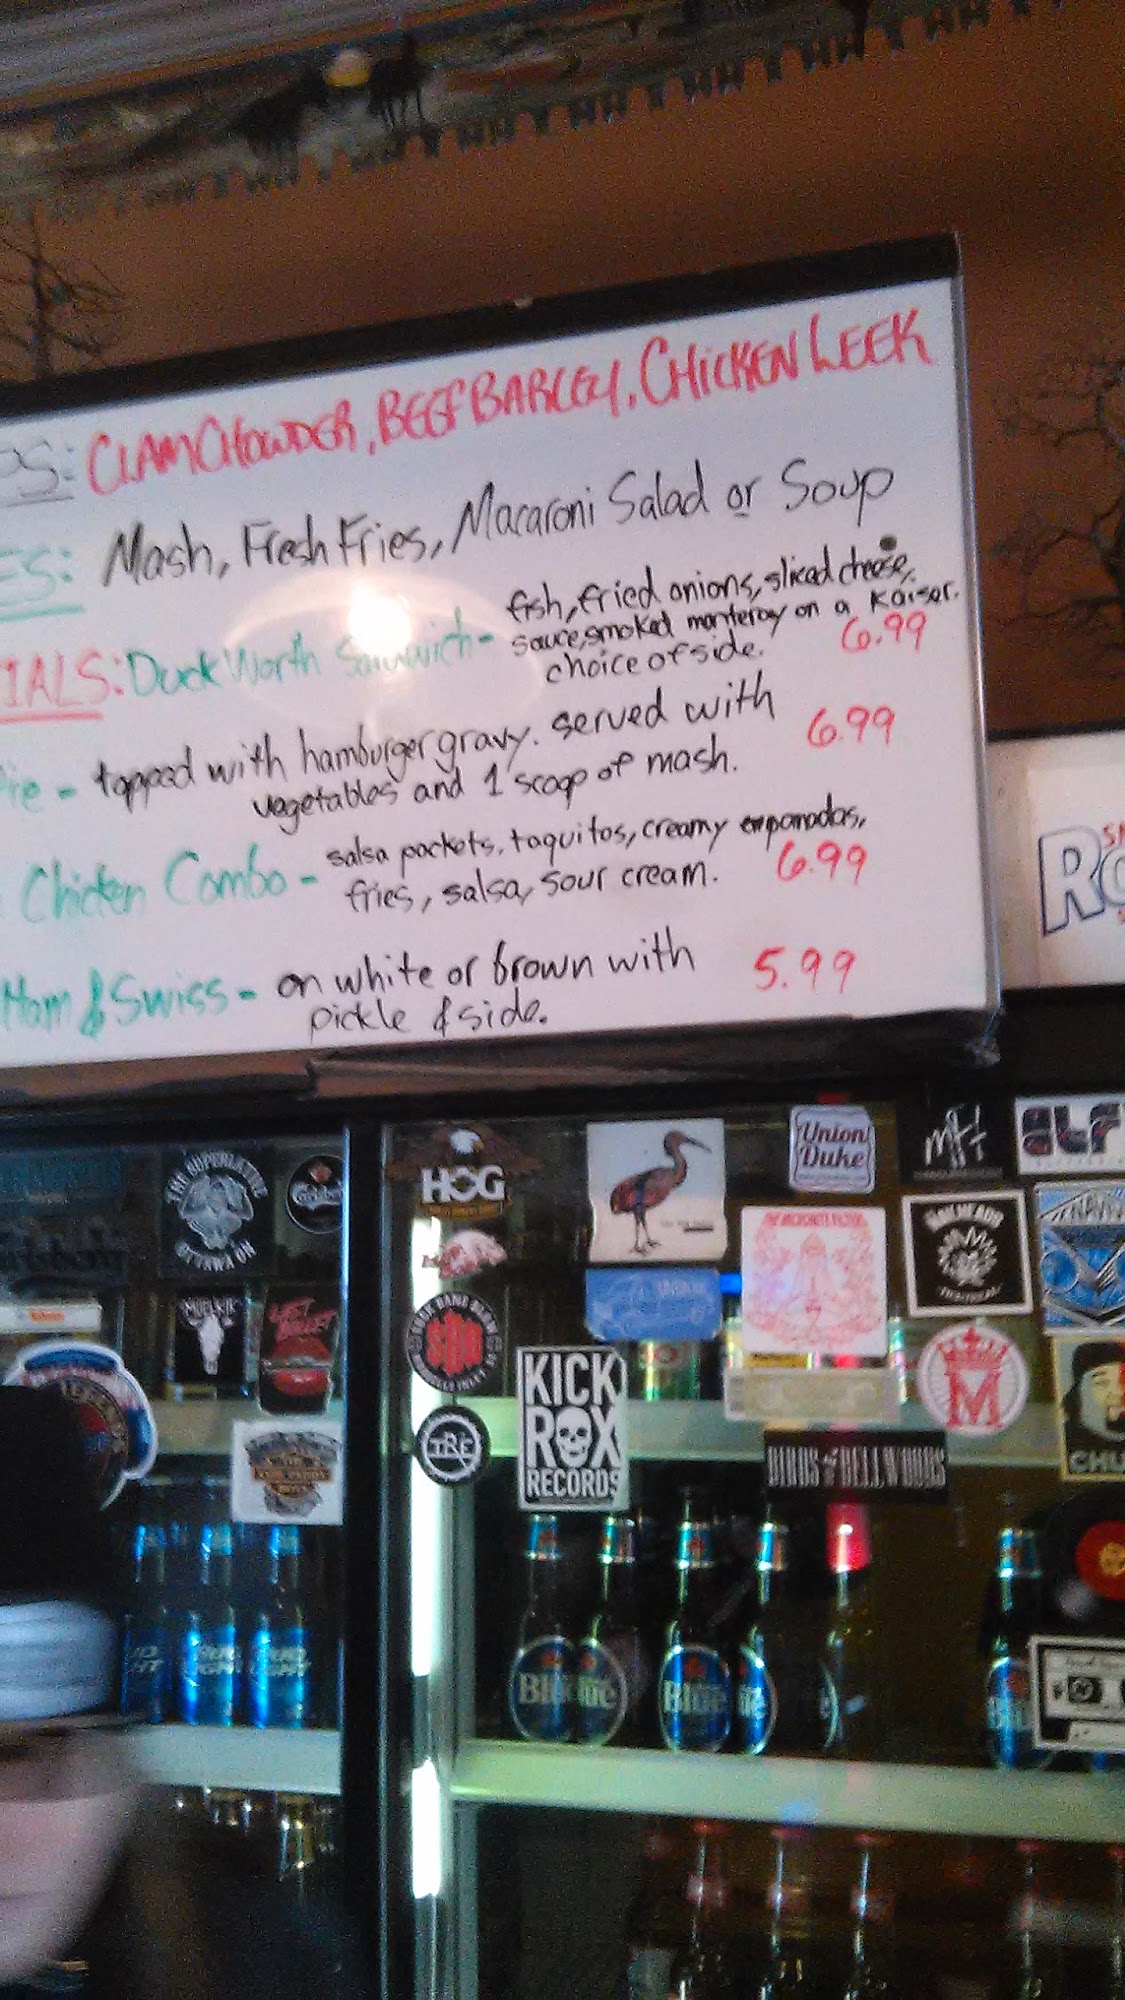 PS: CLAM CHOWDER, BEEF BARLEY, CHICKEN LEEK
ES: Mash, Fresh Fries, Macaroni Salad or Soup
IALS: Duck Worth Sandwich - fish, fried onions, sliced cheese,
sauce, smoked monteray on a Kaiser.
choice of side. 6.99
Pie - topped with hamburger gravy. served with
vegetables and 1 scoop of mash. 6.99
Chicken Combo - salsa pockets, taquitos, creamy empanadas,
fries, salsa, sour cream. 6.99
Ham & Swiss - on white or brown with
pickle & side. 5.99
HOG
Union
Duke
THE SUPERLATIVE
OTTAWA ON
Carlsberg
KICK
ROX
RECORDS
TRE
SDB
M
BIRDS OF BELLWOODS
CHU
BUD
LIGHT
Blue
Blue
Blue